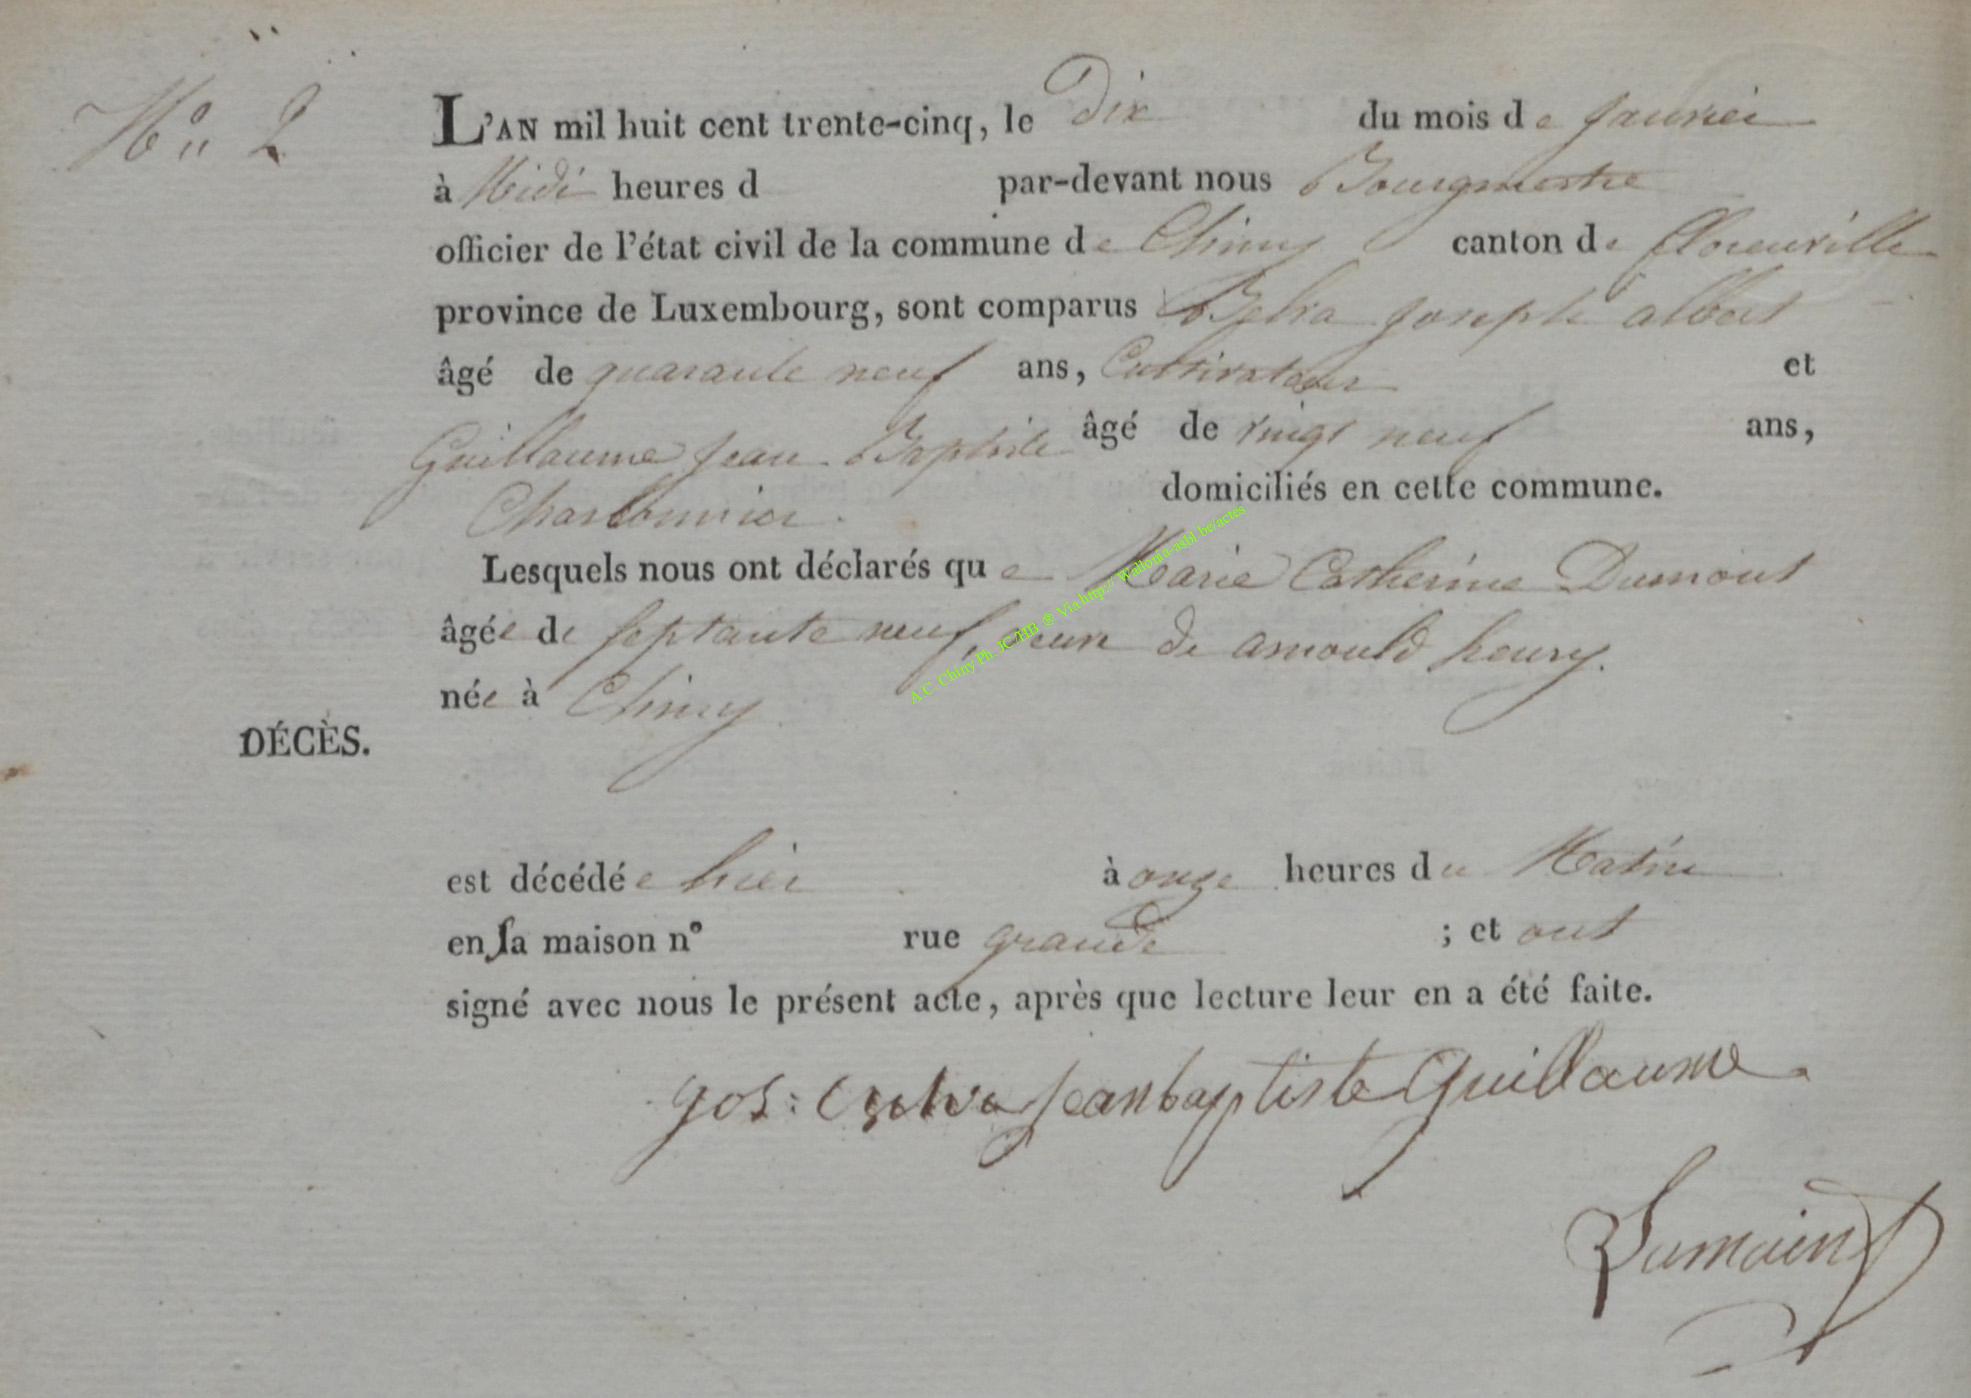 N° 2
L'AN mil huit cent trente-cinq, le Dix du mois de janvier
à Midi heures d par-devant nous Bourgmestre
officier de l'état civil de la commune de Chiny canton de florenville
province de Luxembourg, sont comparus joseph albert
âgé de quarante neuf ans, Cultivateur et
Guillaume jean Baptiste âgé de vingt neuf ans,
Charbonnier. domiciliés en cette commune.
Lesquels nous ont déclarés que Marie Catherine Dumont
âgée de septante neuf, veuve de arnould henry.
née à Chiny
DÉCÈS.
est décédée hier à onze heures du Matin
en sa maison n° rue grande ; et ont
signé avec nous le présent acte, après que lecture leur en a été faite.
jos: jeanbaptiste Guillaume
A C Chiny Ph JC/HB @ Via http:// Wallonia-asbl.be/actes